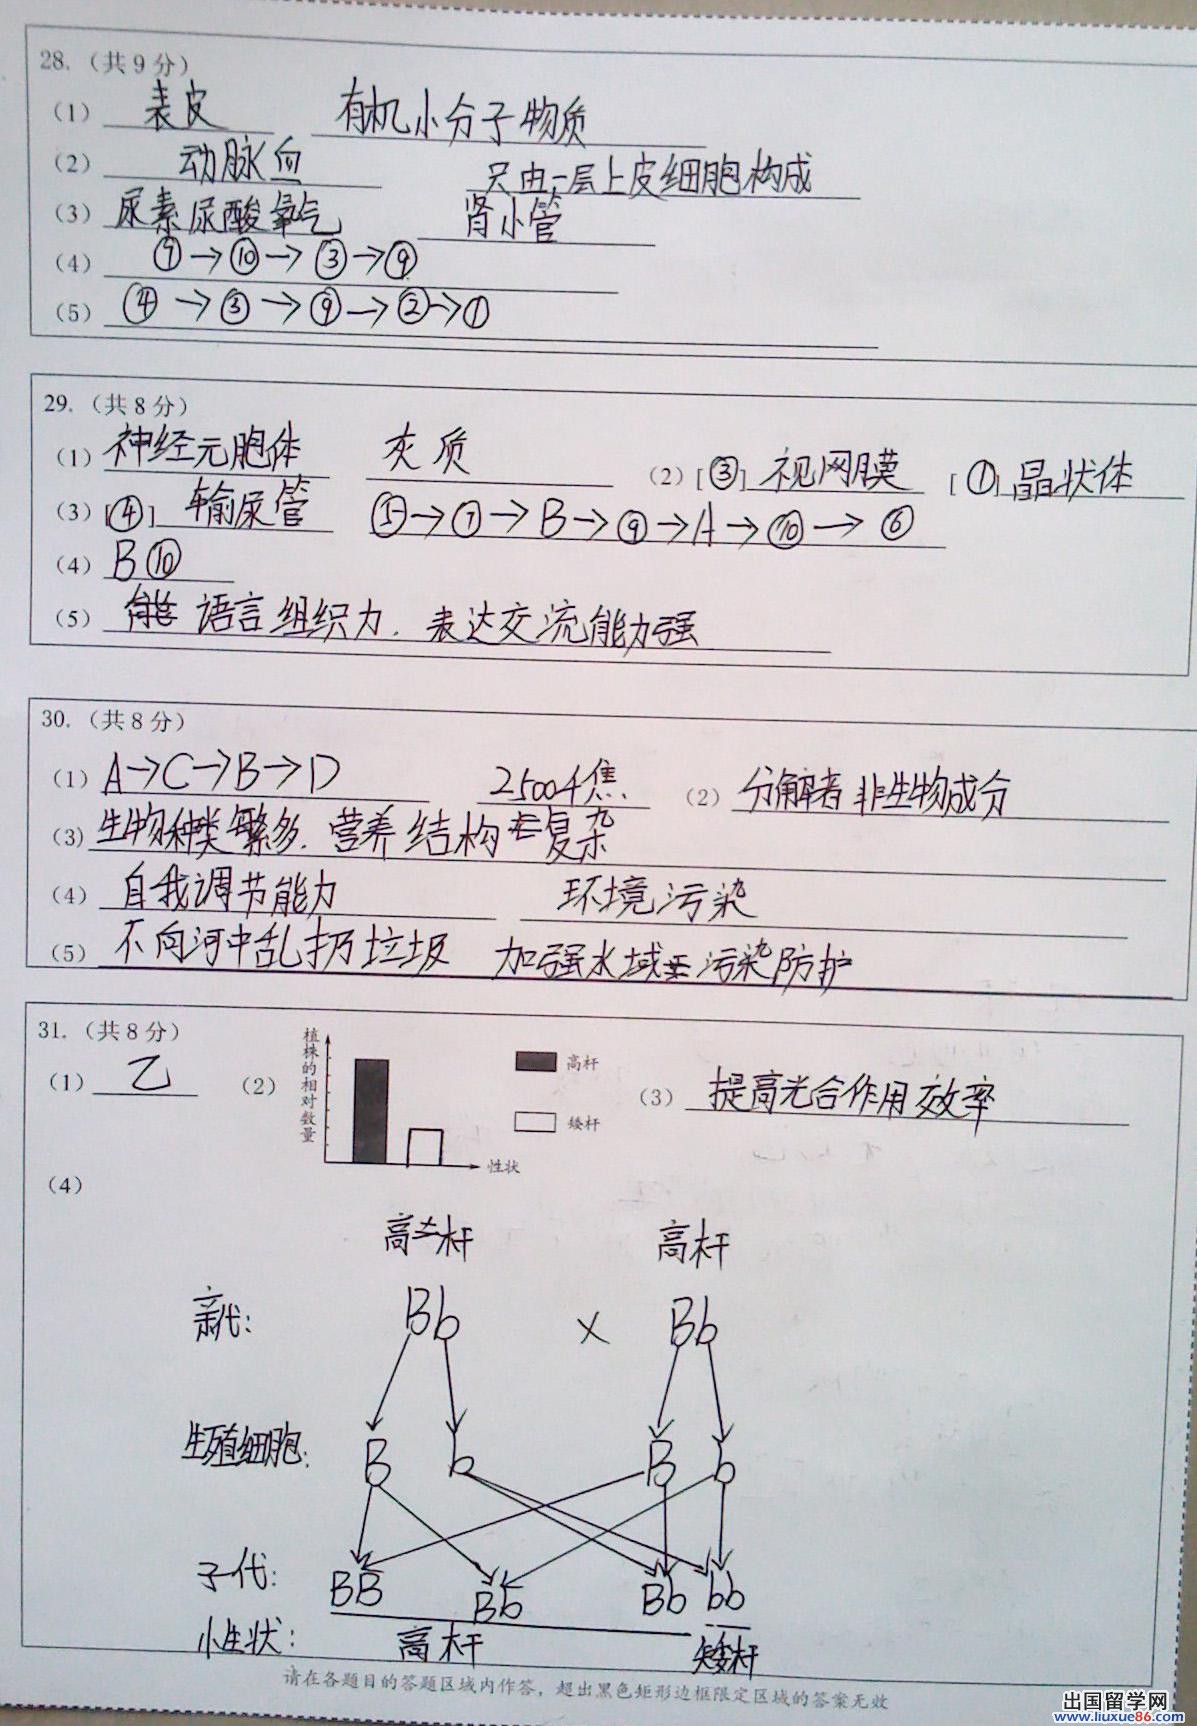 28.（共9分）
（1） 表皮 有机小分子物质
（2） 动脉血 只由一层上皮细胞构成
（3） 尿素尿酸氧气 肾小管
（4） ⑦→⑩→③→⑨
（5） ④→③→⑨→②→①
29.（共8分）
（1） 神经元胞体 灰质 （2）[③] 视网膜 [①] 晶状体
（3）[④] 输尿管 ⑤→⑦→B→⑨→A→⑩→⑥
（4） B⑩
（5） 语言组织力．表达交流能力强
30.（共8分）
（1） A→C→B→D 2500千焦 （2） 分解者 非生物成分
（3） 生物种类繁多．营养结构复杂
（4） 自我调节能力 环境污染
（5） 不向河中乱扔垃圾 加强水域污染防护
31.（共8分）
（1） 乙 （2） 植株的相对数量 高杆 矮杆 性状 （3） 提高光合作用效率
（4）
高杆 高杆
亲代: Bb × Bb
生殖细胞: B b B b
子代: BB Bb Bb bb
性状: 高杆 矮杆
请在各题目的答题区域内作答，超出黑色矩形边框限定区域的答案无效
出国留学网
www.liuxue86.com